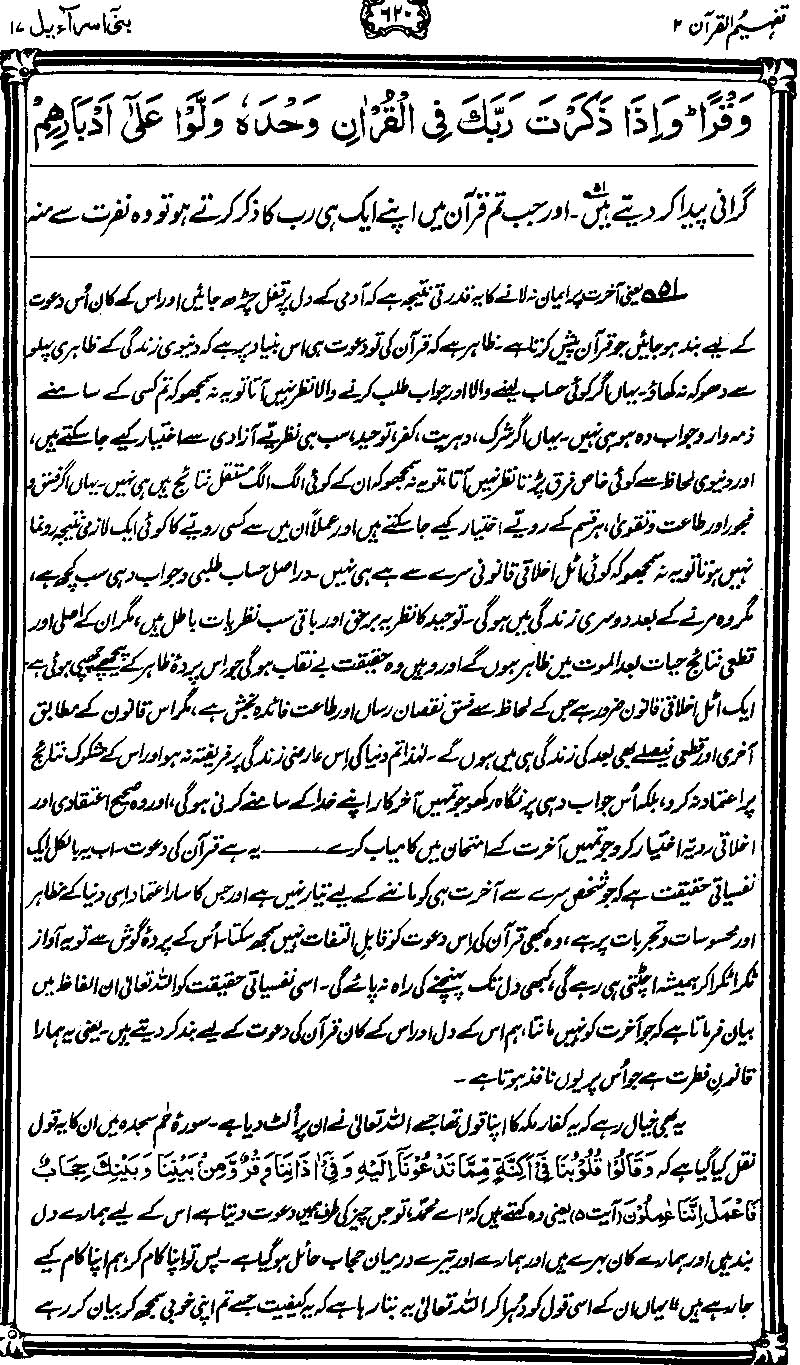 تفہیم القرآن ۲
۶۲۰
بنی اسرآءیل ۱۷
وَقْرًا ؕ وَاِذَا ذَكَرْتَ رَبَّكَ فِى الْقُرْاٰنِ وَحْدَهٗ وَلَّوْا عَلٰٓى اَدْبَارِهِمْ
گرانی پیدا کر دیتے ہیں۵۱۔ اور جب تم قرآن میں اپنے ایک ہی رب کا ذکر کرتے ہو تو وہ نفرت سے منہ
۵۱ یعنی آخرت پر ایمان نہ لانے کا یہ قدرتی نتیجہ ہے کہ آدمی کے دل پر قفل چڑھ جائیں اور اس کے کان اُس دعوت
کے لیے بند ہو جائیں جو قرآن پیش کرتا ہے۔ ظاہر ہے کہ قرآن کی تو دعوت ہی اس بنیاد پر ہے کہ دنیوی زندگی کے ظاہری پہلو
سے دھوکہ نہ کھاؤ۔ یہاں اگر کوئی حساب لینے والا اور جواب طلب کرنے والا نظر نہیں آتا تو یہ نہ سمجھو کہ تم کسی کے سامنے
ذمہ دار و جواب دہ ہو ہی نہیں۔ یہاں اگر شرک، دہریت، کفر، توحید، سب ہی نظریے آزادی سے اختیار کیے جا سکتے ہیں،
اور دنیوی لحاظ سے کوئی خاص فرق پڑتا نظر نہیں آتا، تو یہ نہ سمجھو کہ ان کے کوئی الگ الگ مستقل نتائج ہیں ہی نہیں۔ یہاں اگر فسق و
فجور اور طاعت و تقویٰ، ہر قسم کے رویے اختیار کیے جا سکتے ہیں اور عملاً ان میں سے کسی رویے کا کوئی ایک لازمی نتیجہ رونما
نہیں ہوتا تو یہ نہ سمجھو کہ کوئی اٹل اخلاقی قانونی سرے سے ہے ہی نہیں۔ دراصل حساب طلبی و جواب دہی سب کچھ ہے،
مگر وہ مرنے کے بعد دوسری زندگی میں ہوگی۔ توحید کا نظریہ برحق اور باقی سب نظریات باطل ہیں، مگر ان کے اصلی اور
قطعی نتائج حیات بعد الموت میں ظاہر ہوں گے اور وہیں وہ حقیقت بے نقاب ہوگی جو اس پردۂ ظاہر کے پیچھے چھپی ہوئی ہے۔
ایک اٹل اخلاقی قانون ضرور ہے جس کے لحاظ سے فسق نقصان رساں اور طاعت فائدہ بخش ہے، مگر اس قانون کے مطابق
آخری اور قطعی فیصلے بھی بعد کی زندگی ہی میں ہوں گے۔ لہٰذا تم دنیا کی اس عارضی زندگی پر فریفتہ نہ ہو اور اس کے مشکوک نتائج
پر اعتماد نہ کرو، بلکہ اُس جواب دہی پر نگاہ رکھو جو تمہیں آخر کار اپنے خدا کے سامنے کرنی ہوگی، اور وہ صحیح اعتقادی اور
اخلاقی رویہ اختیار کرو جو تمہیں آخرت کے امتحان میں کامیاب کرے ــــــــ یہ ہے قرآن کی دعوت۔ اب یہ بالکل ایک
نفسیاتی حقیقت ہے کہ جو شخص سرے سے آخرت ہی کو ماننے کے لیے تیار نہیں ہے اور جس کا سارا اعتماد اسی دنیا کے مظاہر
اور محسوسات و تجربات پر ہے، وہ کبھی قرآن کی اس دعوت کو قابلِ التفات نہیں سمجھ سکتا۔ اُس کے پردۂ گوش سے تو یہ آواز
ٹکرا ٹکرا کر ہمیشہ اچٹتی ہی رہے گی، کبھی دل تک پہنچنے کی راہ نہ پائے گی۔ اسی نفسیاتی حقیقت کو اللہ تعالیٰ ان الفاظ میں
بیان فرماتا ہے کہ جو آخرت کو نہیں مانتا، ہم اس کے دل اور اس کے کان قرآن کی دعوت کے لیے بند کر دیتے ہیں۔ یعنی یہ ہمارا
قانونِ فطرت ہے جو اُس پر یوں نافذ ہوتا ہے۔
یہ بھی خیال رہے کہ یہ کفار مکہ کا اپنا قول تھا جسے اللہ تعالیٰ نے ان پر اُلٹ دیا ہے۔ سورۂ حٰم سجدہ میں ان کا یہ قول
نقل کیا گیا ہے کہ وَقَالُوْا قُلُوْبُنَا فِیْٓ اَكِنَّةٍ مِّمَّا تَدْعُوْنَآ اِلَيْهِ وَفِیْٓ اٰذَانِنَا وَقْرٌ وَّمِنْۢ بَيْنِنَا وَبَيْنِكَ حِجَابٌ
فَاعْمَلْ اِنَّنَا عٰمِلُوْنَ (آیت ۵) یعنی وہ کہتے ہیں کہ "اے محمدؐ، تو جس چیز کی طرف ہمیں دعوت دیتا ہے اس کے لیے ہمارے دل
بند ہیں اور ہمارے کان بہرے ہیں اور ہمارے اور تیرے درمیان حجاب حائل ہو گیا ہے۔ پس تو اپنا کام کر، ہم اپنا کام کیے
جا رہے ہیں"۔ یہاں ان کے اسی قول کو دُہرا کر اللہ تعالیٰ یہ بتا رہا ہے کہ یہ کیفیت جسے تم اپنی خوبی سمجھ کر بیان کر رہے